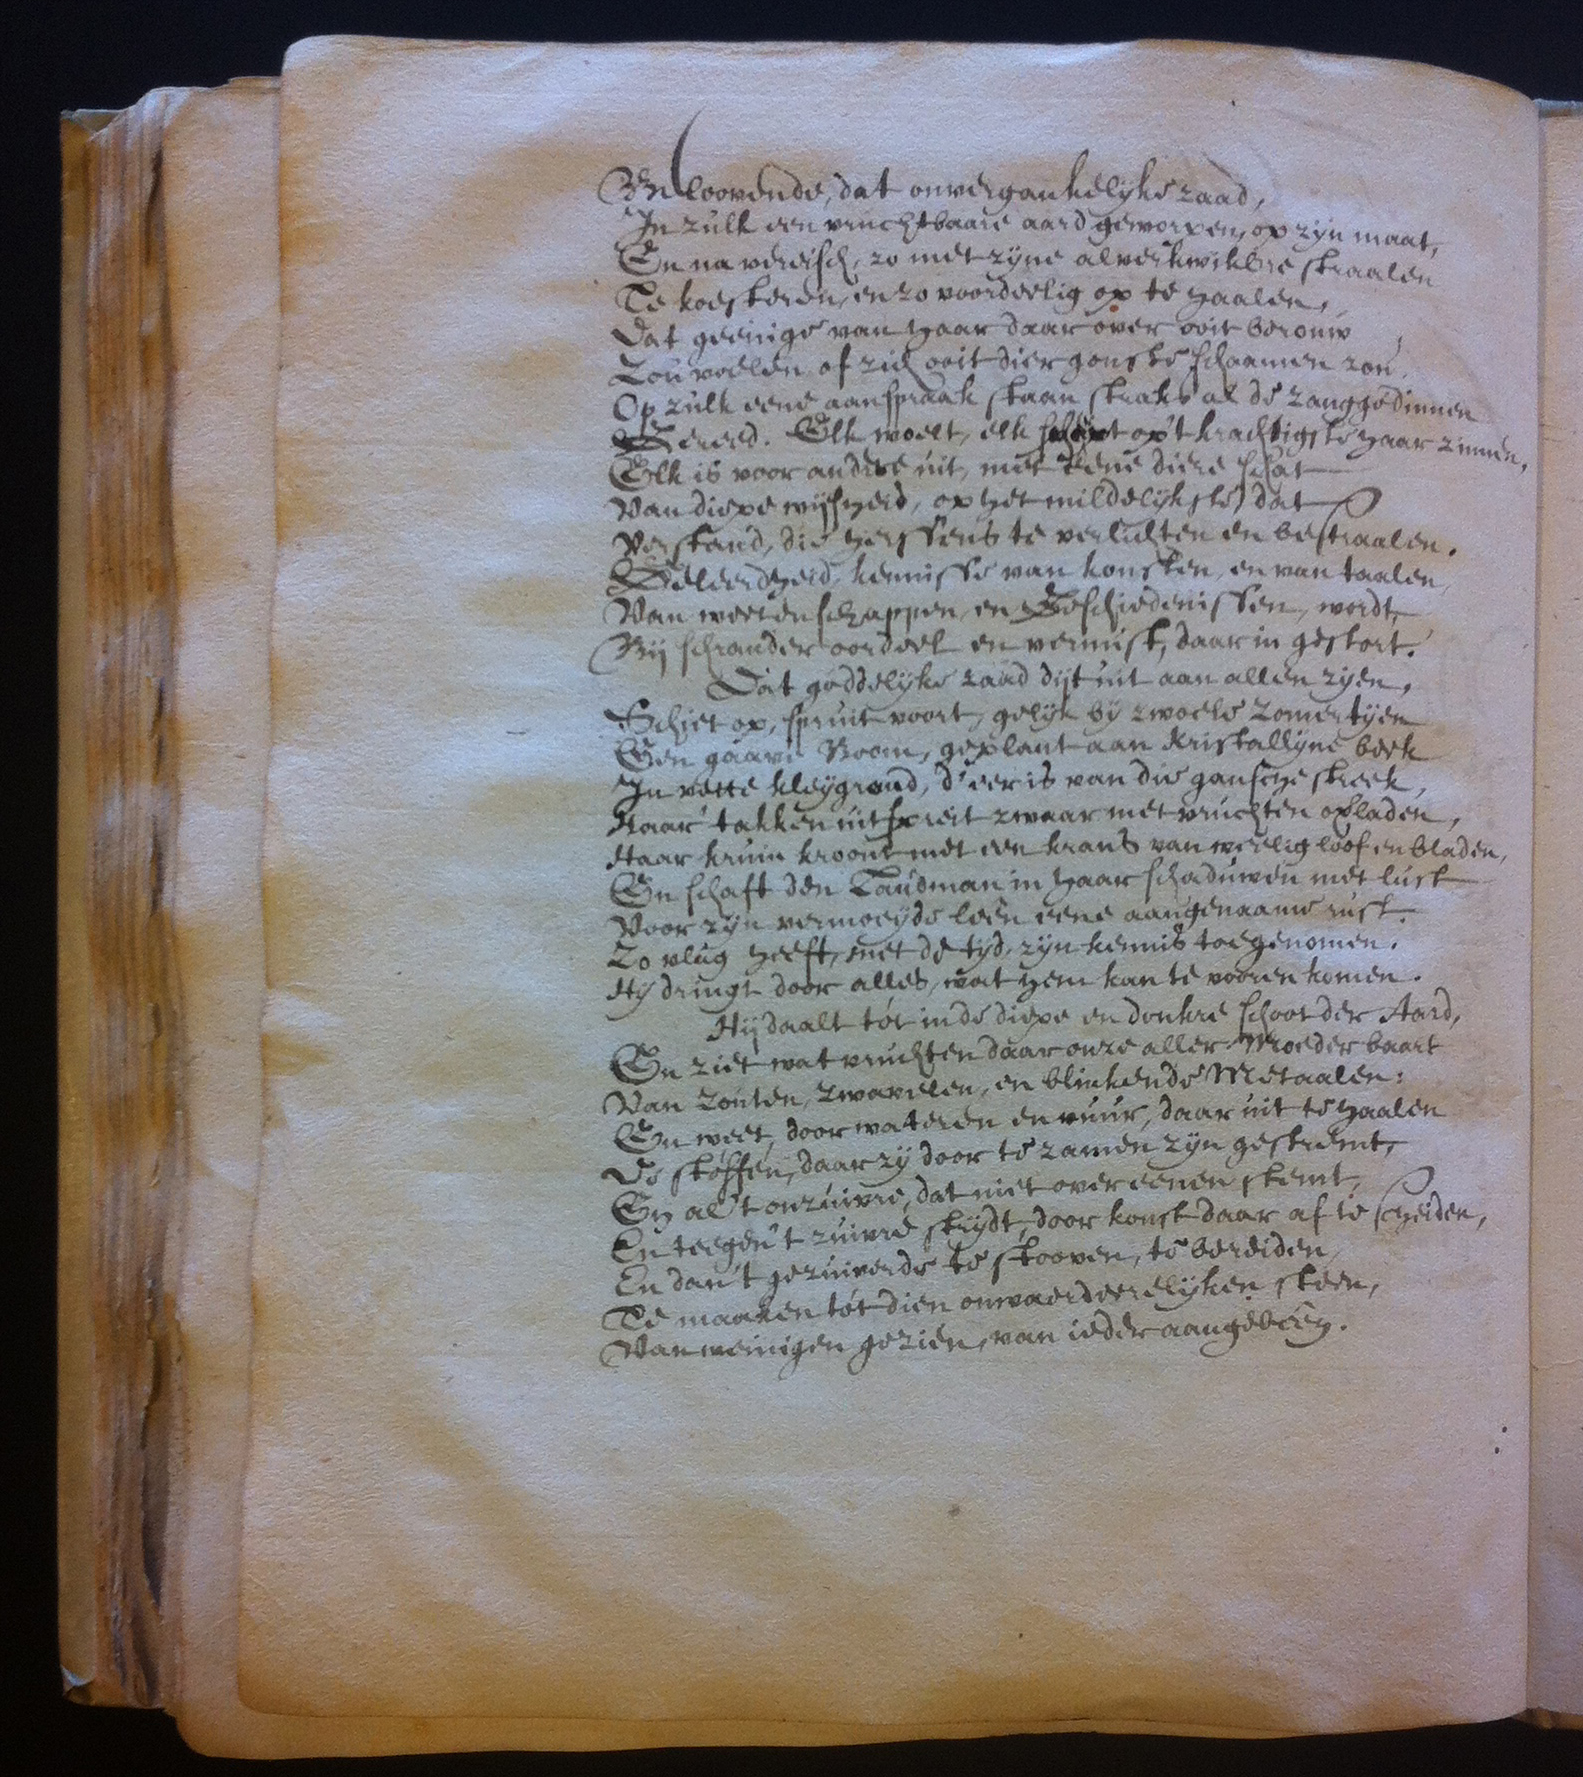 Beloovende, dat onvergankelyke zaad,
In zulk een vruchtbaare aard geworpen, op zyn maat,
En na vereisch, zo met zyne alverkwikbre straalen
Te koesteren, en zo voordeelig op te haalen,
Dat geenige van haar daar over ooit berouw
Zou voelen of zich ooit dier gonste schaamen zou.
Op zulk eene aanspraak staan straks al de zanggodinnen
Gereed. Elk woelt, elk op't krachtigste haar zinnen,
Elk is voor andre uit, met eene diere schat
Van diepe wysheid, op het mildelykste, dat
Verstand, die herssens te verlichten en bestraalen.
Geleerdheid, kennisse van konsten, en van taalen,
Van weetenschappen, en Geschiedenissen, wordt,
Bij schrander oordeel en vernuft, daar in gestort.
Dat goddelyke zaad dijt uit aan allen zyen,
Schiet op, spruit voort, gelyk by zwoele zomertyen
Een gaave Boom, geplant aan kristallyne beek
In vette kleygrond, d'eer is van die gansche streek,
Haar takken uitspreit zwaar met vruchten opladen,
Haar kruin kroont met een krans van weelig loof en bladen,
En schaft den Landman in haar schaduwen met lust
Voor zyn vermoeyde leên eene aangenaame rust.
Zo vlug heeft, met de tyd, zyn kennis toegenomen.
Hy dringt door alles, wat hem kan te vooren komen.
Hij daalt tot in de diepe en donkre schoot der Aard,
En ziet wat vruchten daar onze aller Moeder baart
Van zouten, zwavelen, en blinkende Metaalen:
En weet, door wateren en vuur, daar uit te haalen
De stoffen, daar zy door te zamen zyn gestremt,
En al't onzuivre, dat niet over eenen stemt,
En teegen't zuivre strydt, door konst daar af te scheiden,
En dan't gezuiverde te stooven, te bereiden,
Te maaken tot dien onwaerdeerelyken steen,
Van weinigen gezien, van ieder aangebeên.